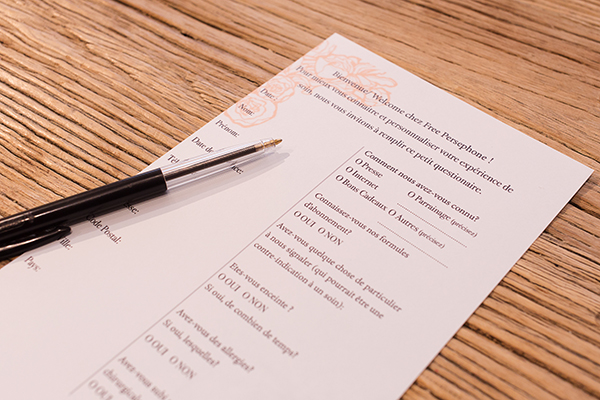 Bienvenue/ Welcome chez Free Persephone !
Pour mieux vous connaitre et personnaliser votre expérience de
soin, nous vous invitons à remplir ce petit questionaire.
Date:
Nom:
Prénom:
Date de
Code Postal:
Pays:
Comment nous avez-vous connu?
O Presse
O Parrainage (précisez)
O Internet
O Bons Cadeaux O Autres (précisez)
Connaissez-vous nos formules
d'abonnement?
O OUI O NON
Avez-vous quelque chose de particulier
à nous signaler (qui pourrait être une
contre-indication à un soin):
Etes-vous enceinte ?
O OUI O NON
Si oui, de combien de temps?
Avez-vous des allergies?
Si oui, lesquelles?
O OUI O NON
Avez-vous subi
O OUI